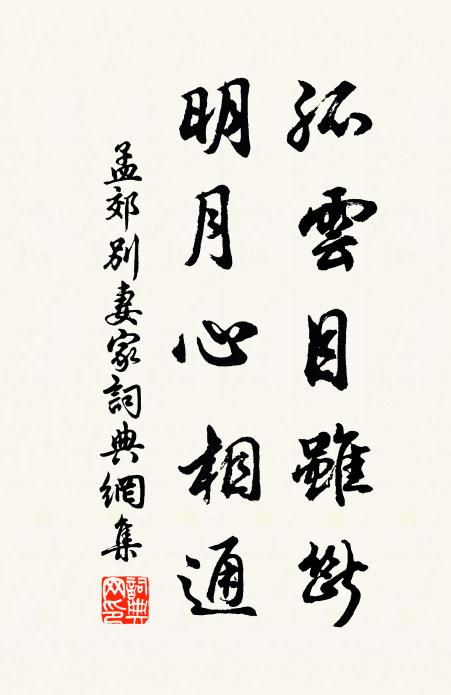 孤雲目雖斷
明月心相通
孟郊別妻家詞典網集
詞典网印